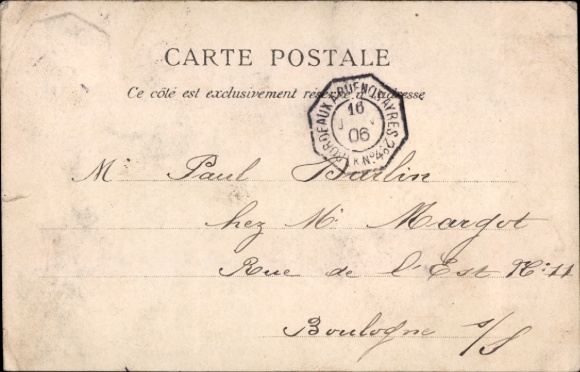 CARTE POSTALE
Ce côté est exclusivement réservé à l'adresse
BORDEAUX A BUENOS-AYRES 2º
16
06
LK Nº 4
Mr Paul Burlin
chez Mr Margot
Rue de l'Est Nº 11
Boulogne s/S